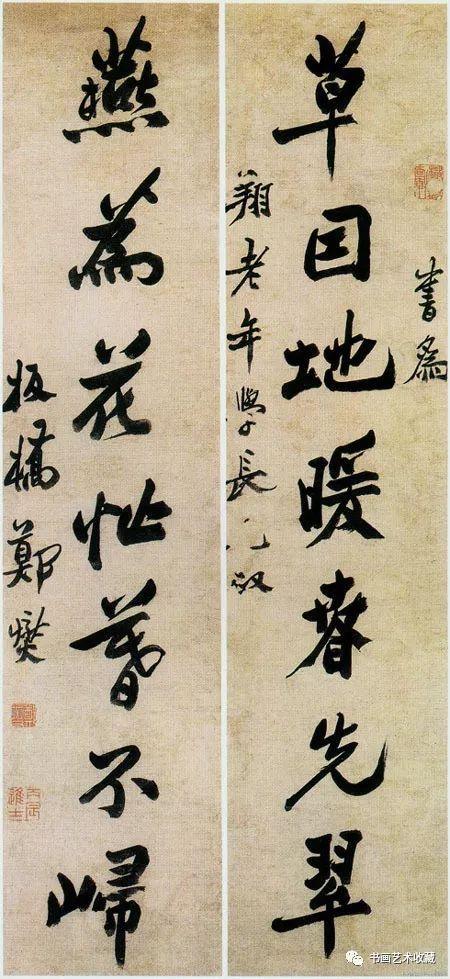 書為
草因地暖春先翠
翔老年學長兄政
燕為花忙暮不歸
板橋鄭燮
丙辰進士
书画艺术收藏